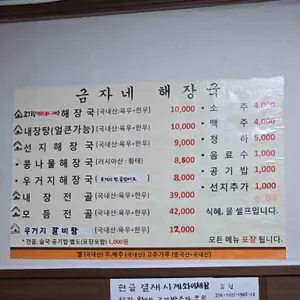 금자네 해장국
해장국 (국내산:육우+한우) 10,000
내장탕(얼큰가능) (국내산:육우+한우) 10,000
선지해장국 (국내산:육우+한우) 9,000
콩나물해장국 (러시아산:황태) 8,000
우거지해장국 8,000
내장전골 (국내산:육우+한우) 39,000
모듬전골 (국내산:육우+한우) 42,000
우거지 갈비탕 12,000
* 전골, 술국 공기밥 별도(포장포함) 1,000원
• 소주 4,000
• 맥주 4,000
• 청하 5,000
• 음료수 1,000
• 공기밥 1,000
• 선지추가 1,000
식혜, 물 셀프입니다.
모든 메뉴 포장 됩니다.
쌀(국내산) 무,배추(국내산) 고추가루(중국산+국내산)
현금 결재시 계좌이체용
농협